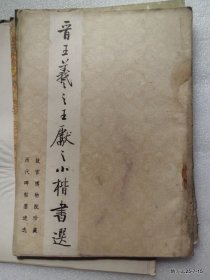 晋王羲之王献之小楷書選
故宮博物院珍藏
历代碑帖墨迹选